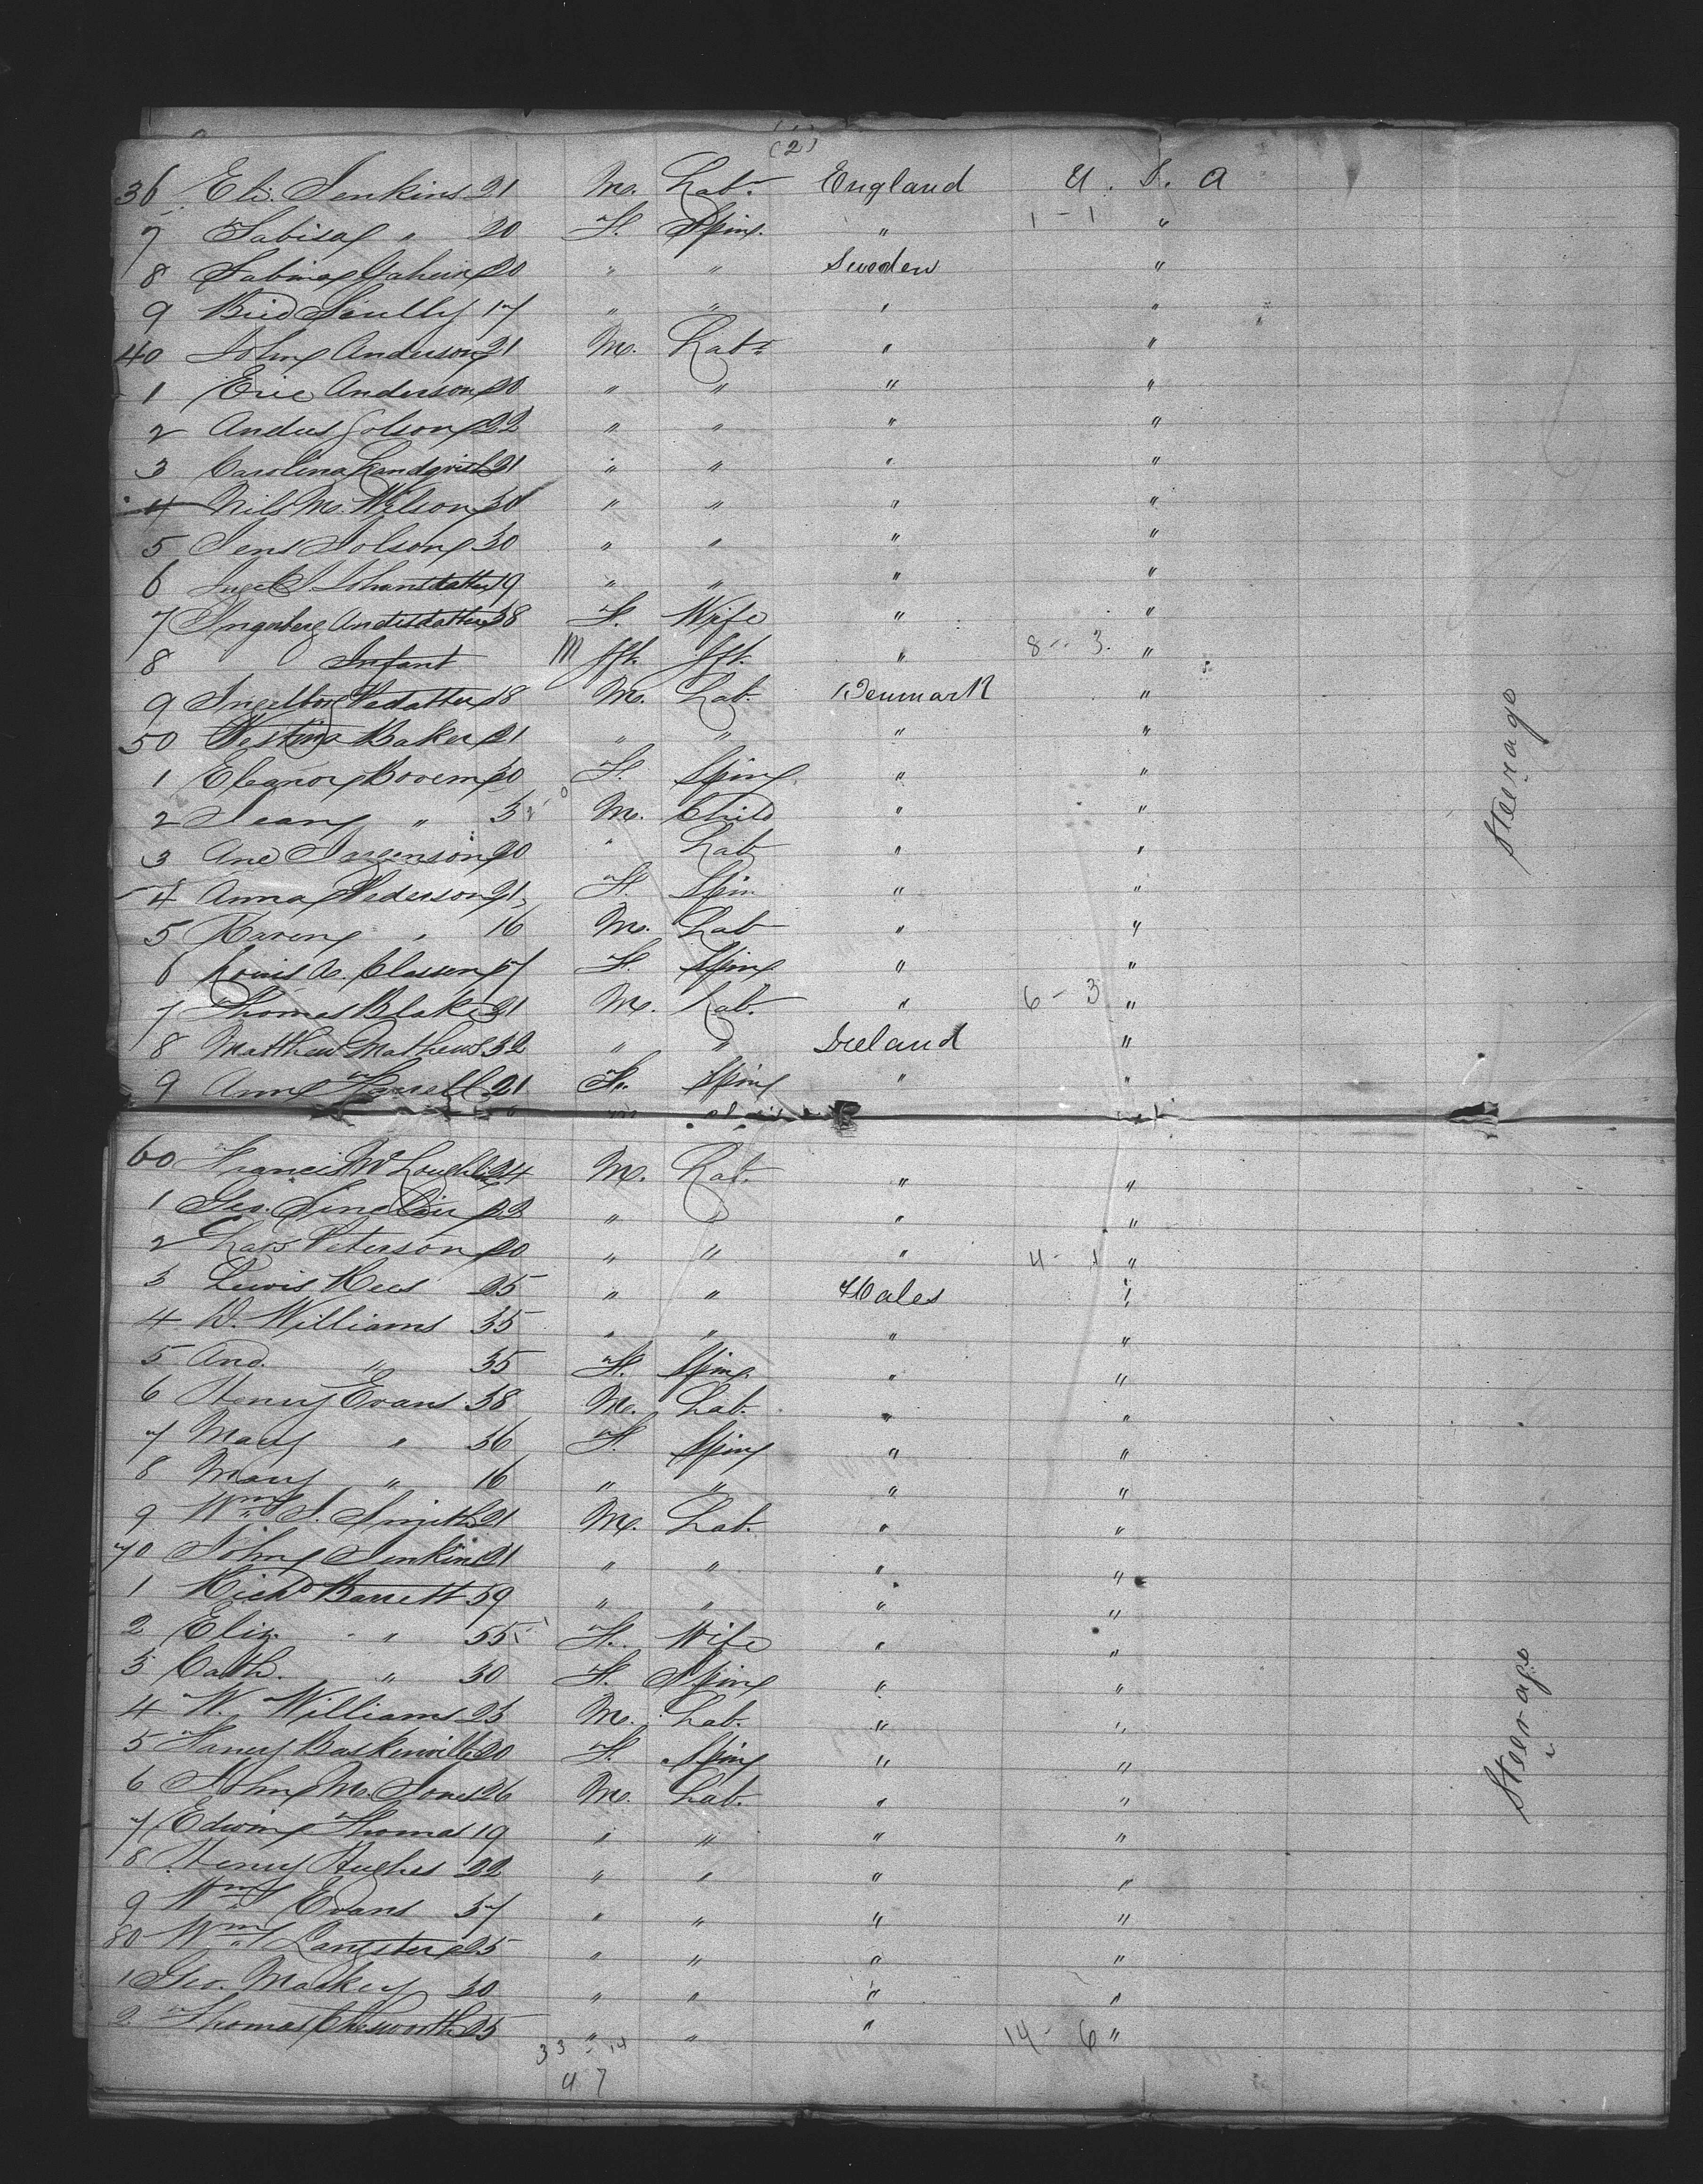 (2)
36 Eli. Jenkins 21 M. Labr. England U. S. A
7 " 20 F. Spin. " 1-1 "
8 Sabina 20 " " Sweden "
9 Brid Scully 17 " " " "
40 John Anderson 21 M. Labr. " "
1 Eric Anderson 20 " " " "
2 Andus Golson 22 " " " "
3 Carolina Landqvist 21 " " " "
4 Nils M. Wilson 30 " " " "
5 Jens Jolson 30 " " " "
6 Johansdatter 19 " " " "
7 Ingerberg Andisdatter 38 F. Wife " "
8 Infant M fft. fft. " 8-3. "
9 Ingelbor Pedatter 18 M. Lab. Denmark "
50 Baker 21 " " " "
1 Eleanor Borem 30 F. Spin. " "
2 Jean " 3 M. Child " "
3 Ane Jurgenson 20 " Lab " "
4 Anna Pederson 21 F. Spin " "
5 Karen " 16 M. Lab " "
6 Louis C. Classen 57 F. Spin " "
7 Thomas Blake 21 M. Lab. " 6-3 "
8 Matthew Mathews 32 " " Ireland "
9 Ann Farrell 21 F. Spin " "
60 Francis McLoughlin 24 M. Lab. " "
1 Geo. Sinclair 22 " " " "
2 Chas Peterson 20 " " " 4-1 "
3 Lewis Rees 25 " " Wales "
4 W. Williams 35 " " " "
5 And. " 35 F. Spin. " "
6 Henry Evans 38 M. Lab. " "
7 Mary " 36 F. Spin " "
8 Mary " 16 " " " "
9 Wm. S. Smith 21 M. Lab. " "
70 John Jenkins 21 " " " "
1 Richd Barrett 59 " " " "
2 Eliz. " 55 F. Wife " "
3 Cath. " 30 F. Spin " "
4 W. Williams 23 M. Lab. " "
5 Fancy Baskerville 20 F. Spin " "
6 John M. Jones 26 M. Lab. " "
7 Edwin Thomas 19 " " " "
8 Henry Hughes 22 " " " "
9 Wm. Evans 37 " " " "
80 Wm. Langster 25 " " " "
1 Geo. Mackey 30 " " " "
2 Thomas Chesworth 25 " " " 14-6 "
33-14
47
Steerage
Steerage